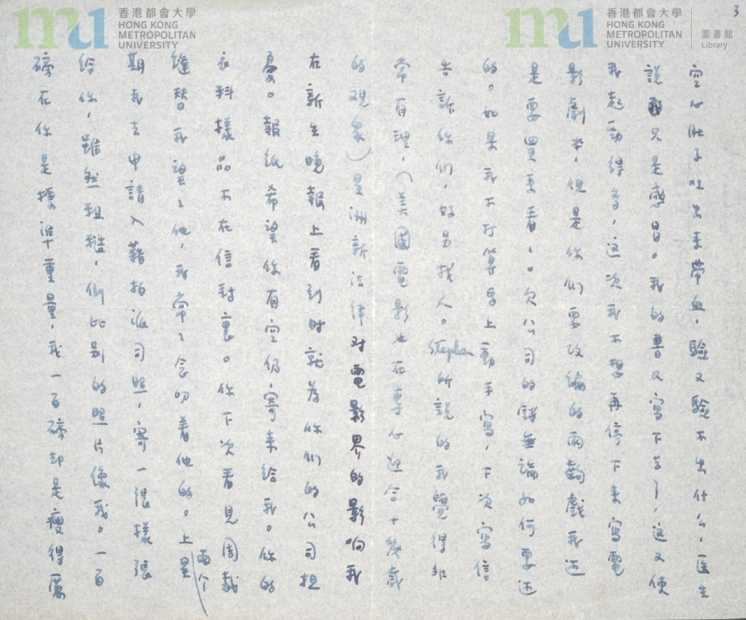 香港都會大學
HONG KONG
METROPOLITAN
UNIVERSITY
香港都會大學
HONG KONG
METROPOLITAN
UNIVERSITY
圖書館
Library
3
空心肚子吐出來帶血，驗又驗不出什么，医生
說我只是感冒。我的書又寫下去了，這又使
我起勁得多，這次我不想再停下來寫電
影劇本，但是你們要改編的兩齣戲我还
是要買來看，。欠公司的錢無論如何要还
的。如果我不打算馬上動手寫，下次寫信
告訴你們，好另找人。Stephen所說的我覺得非
常有理，（美國電影也在專心迎合十幾歲
的观众）星洲新法律对電影界的影响我
在新生晚報上看到时就為你們的公司担
憂。報紙希望你有空仍寄來給我。你的
衣料樣品不在信封裏。你下次看見周裁
縫替我望望他，我常常念叨着他的。上两个星
期我去申請入籍拍派司照，寄一張樣張
給你，雖然粗糙，倒比别的照片像我。一百
磅在你是標準重量，我一百磅却是瘦得厲